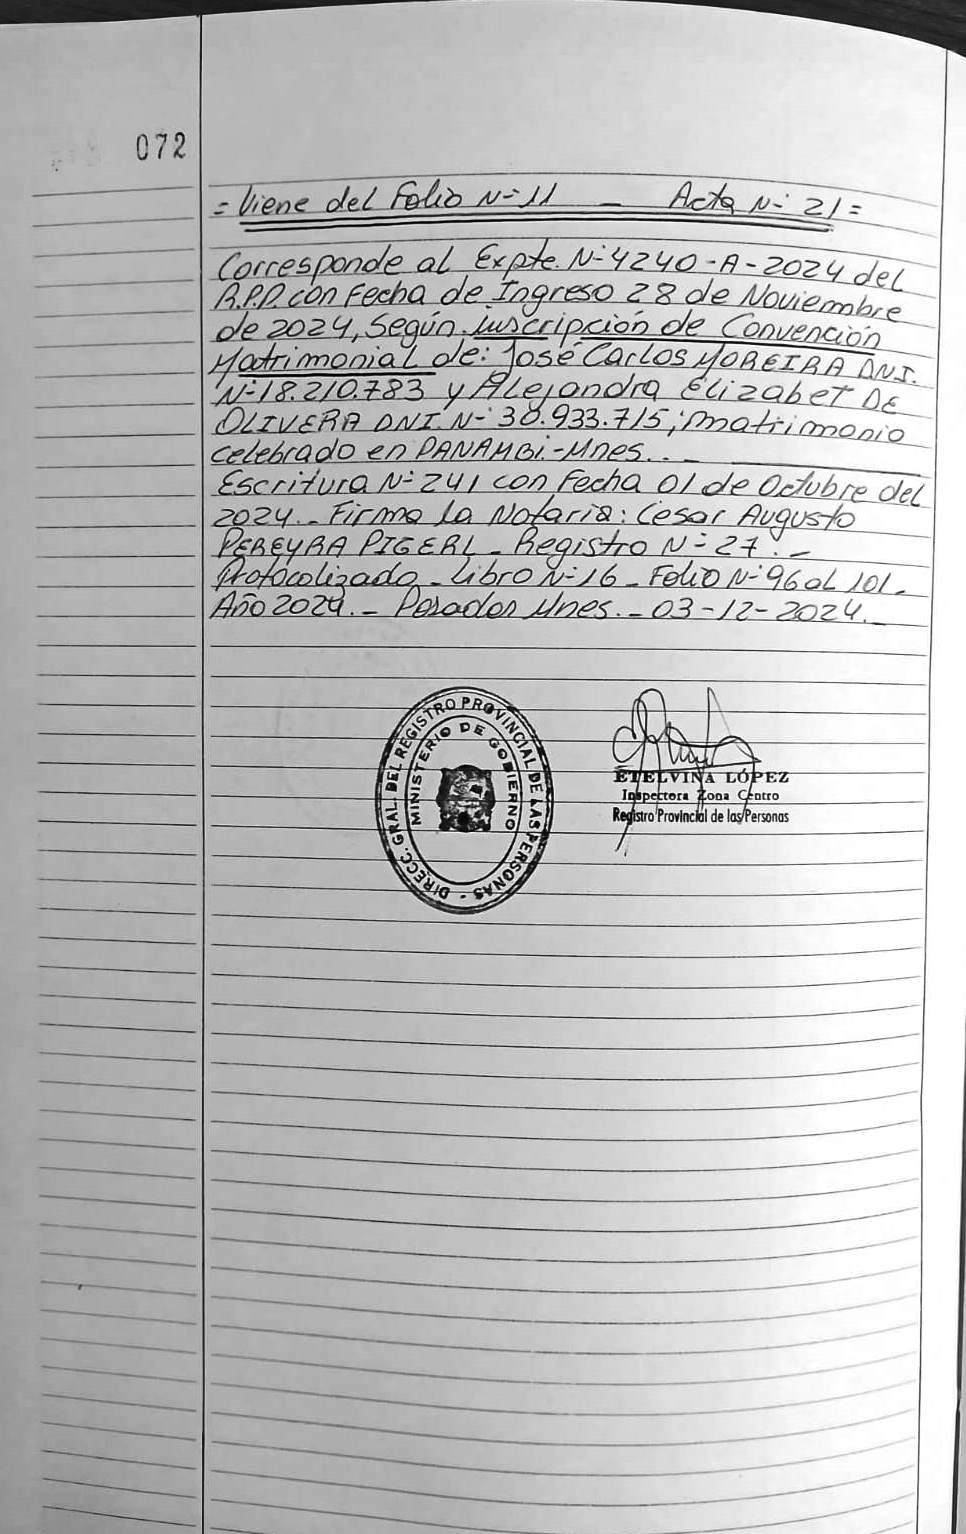 072
= Viene del Folio N-° 11 - Acta N-° 21 =
Corresponde al Expte. N-° 4240-A-2024 del
R.P.P. con Fecha de Ingreso 28 de Noviembre
de 2024, Según inscripción de Convención
Matrimonial de: José Carlos MOREIRA DNI.
N-° 18.210.783 y Alejandra Elizabet DE
OLIVERA DNI. N-° 30.933.715; matrimonio
celebrado en PANAMBI.-Mnes..-
Escritura N-° 241 con Fecha 01 de Octubre del
2024.- Firma la Notaria: Cesar Augusto
PEREYRA PIGERL - Registro N-° 27.-
Protocolizado - Libro N-° 16 - Folio N-° 96 al 101.
Año 2024.- Posadas Mnes.- 03-12-2024.-
DIRECC. GRAL. DEL REGISTRO PROVINCIAL DE LAS PERSONAS -
MINISTERIO DE GOBIERNO
ETELVINA LÓPEZ
Inspectora Zona Centro
Registro Provincial de las Personas